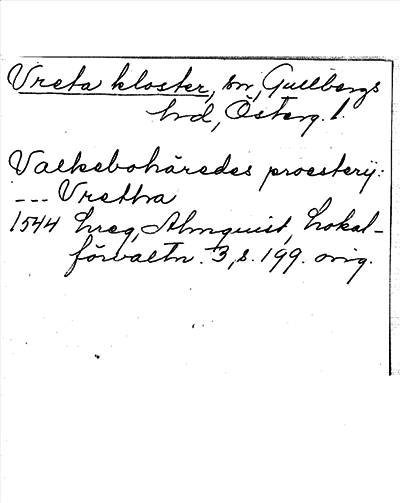 Vreta kloster, sn, Gullbergs
hd, Österg. l.
Valkebohäredes proestery:
--- Vretha
1544 hreg, Almquist, Lokal-
förvaltn. 3, s. 199. orig.